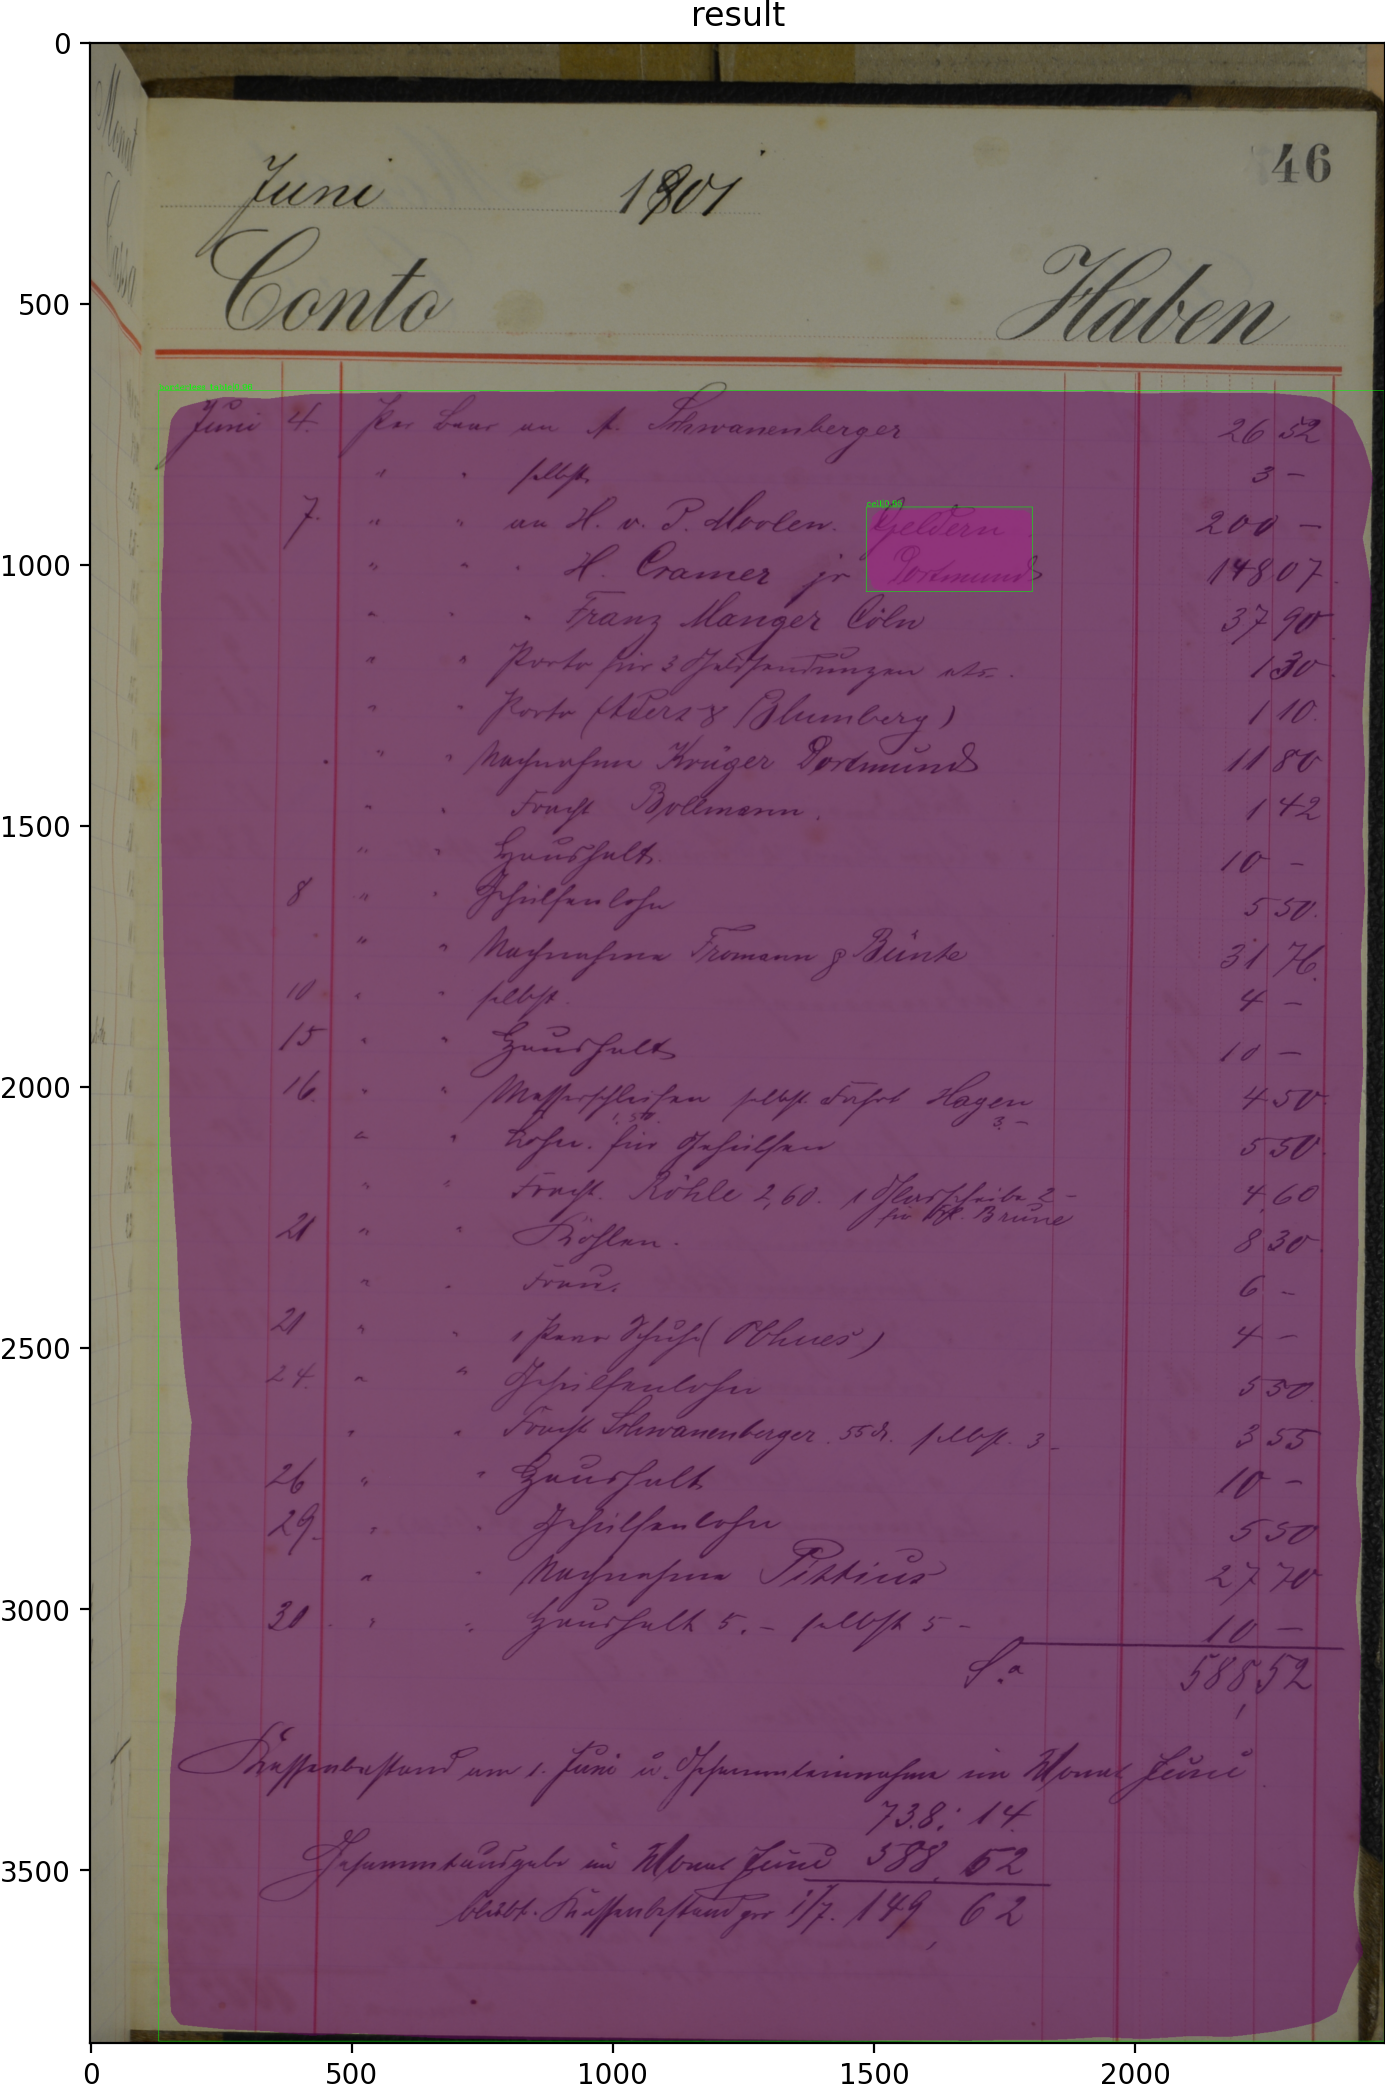 result
46
Juni 1901
Conto Haben
Juni 4. Per Baar an A. Schwanenberger 26 52
" " selbst. 3 -
7. " " an H. v. P. Moolen. Geldern 200 -
" " " H. Cramer jr Dortmund 148 07
" " " Franz Manger Cöln 37 90
" " Porto für 3 Geldsendungen etc. 1 30
" " Porto (Aders & Blumberg) 1 10
" " Nachnahme Krüger Dortmund 11 80
" " Fracht Bollmann. 1 42
" " Haushalt. 10 -
8 " " Gehülfenlohn 5 50
" " Nachnahme Fromann & Bünte 31 76
10 " " selbst. 4 -
15 " " Haushalt 10 -
16. " " Messerschleifen selbst Fahrt Hagen 3.- 4 50
" " Lohn für Gehülfen 5 50
" " Fracht. Röhle 2,60. 1 Glasscheibe 2 - 4,60
für Brune
21 " " Köhlen. 8 30
" " Frau. 6 -
21 " " 1 Paar Schuhe ( ) 4 -
24. " " Gehülfenlohn 5 50
" " Fracht Schwanenberger. 55 selbst. 3 - 3 55
26 " " Haushalt 10 -
29. " " Gehülfenlohn 5 50
" " Nachnahme Pistius 27 70
30 " " Haushalt 5.- selbst 5 - 10 -
S.a 588,52
Kassenbestand am 1. Juni u. Gesammteinnahme im Monat Juni
738: 14.
Gesammtausgabe im Monat Juni 588, 52
bleibt. Kassenbestand per 1/7. 149, 62
0
500
1000
1500
2000
2500
3000
3500
0 500 1000 1500 2000